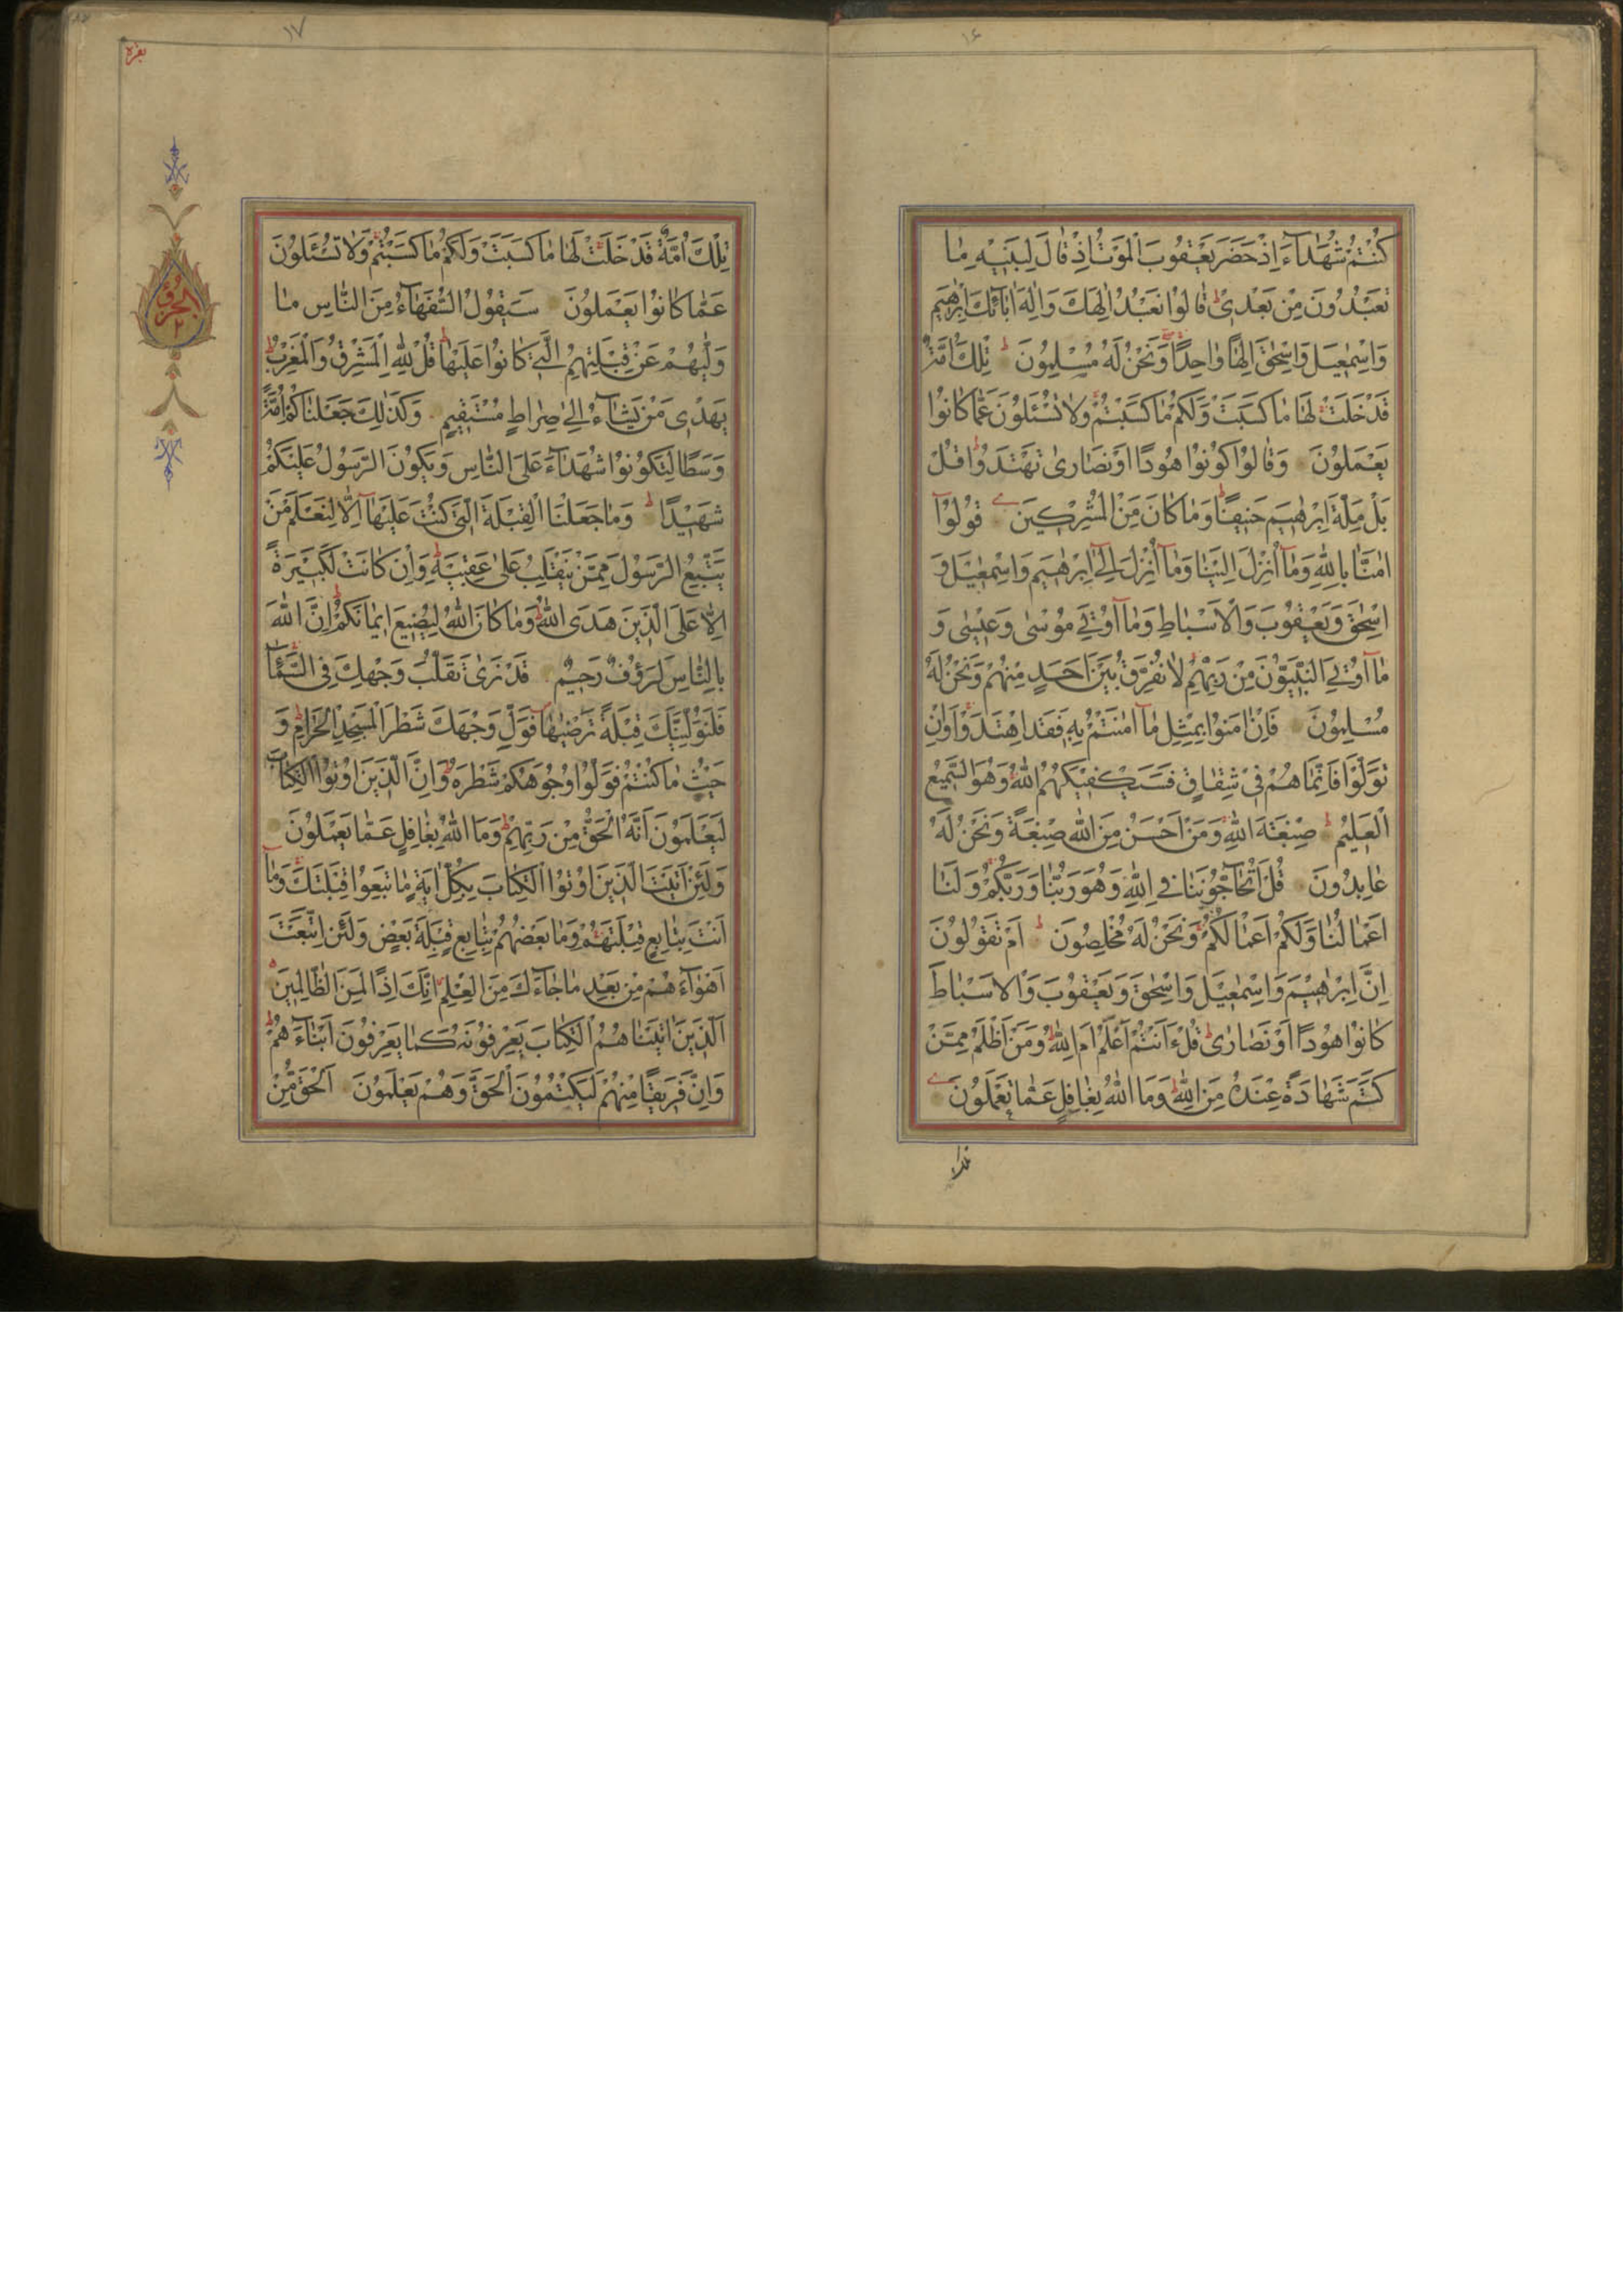 ١٤
كُنْتُمْ شُهَدَآءَ اِذْ حَضَرَ يَعْقُوبَ الْمَوْتُ اِذْ قَالَ لِبَنِيهِ مَا
تَعْبُدُونَ مِنْ بَعْدِى قَالُوا نَعْبُدُ اِلٰهَكَ وَاِلٰهَ اٰبَآئِكَ اِبْرٰهِيمَ
وَاِسْمٰعِيلَ وَاِسْحٰقَ اِلٰهًا وَاحِدًا وَنَحْنُ لَهُ مُسْلِمُونَ تِلْكَ اُمَّةٌ
قَدْ خَلَتْ لَهَا مَا كَسَبَتْ وَلَكُمْ مَا كَسَبْتُمْ وَلَا تُسْئَلُونَ عَمَّا كَانُوا
يَعْمَلُونَ وَقَالُوا كُونُوا هُودًا اَوْ نَصَارٰى تَهْتَدُوا قُلْ
بَلْ مِلَّةَ اِبْرٰهِيمَ حَنِيفًا وَمَا كَانَ مِنَ الْمُشْرِكِينَ قُولُوآ
اٰمَنَّا بِاللّٰهِ وَمَآ اُنْزِلَ اِلَيْنَا وَمَآ اُنْزِلَ اِلٰى اِبْرٰهِيمَ وَاِسْمٰعِيلَ وَ
اِسْحٰقَ وَيَعْقُوبَ وَالْاَسْبَاطِ وَمَآ اُوتِىَ مُوسٰى وَعِيسٰى وَ
مَآ اُوتِىَ النَّبِيُّونَ مِنْ رَبِّهِمْ لَا نُفَرِّقُ بَيْنَ اَحَدٍ مِنْهُمْ وَنَحْنُ لَهُ
مُسْلِمُونَ فَاِنْ اٰمَنُوا بِمِثْلِ مَآ اٰمَنْتُمْ بِهِ فَقَدِ اهْتَدَوْا وَاِنْ
تَوَلَّوْا فَاِنَّمَا هُمْ فِى شِقَاقٍ فَسَيَكْفِيكَهُمُ اللّٰهُ وَهُوَ السَّمِيعُ
الْعَلِيمُ صِبْغَةَ اللّٰهِ وَمَنْ اَحْسَنُ مِنَ اللّٰهِ صِبْغَةً وَنَحْنُ لَهُ
عَابِدُونَ قُلْ اَتُحَآجُّونَنَا فِى اللّٰهِ وَهُوَ رَبُّنَا وَرَبُّكُمْ وَلَنَا
اَعْمَالُنَا وَلَكُمْ اَعْمَالُكُمْ وَنَحْنُ لَهُ مُخْلِصُونَ اَمْ تَقُولُونَ
اِنَّ اِبْرٰهِيمَ وَاِسْمٰعِيلَ وَاِسْحٰقَ وَيَعْقُوبَ وَالْاَسْبَاطَ
كَانُوا هُودًا اَوْ نَصَارٰى قُلْ ءَاَنْتُمْ اَعْلَمُ اَمِ اللّٰهُ وَمَنْ اَظْلَمُ مِمَّنْ
كَتَمَ شَهَادَةً عِنْدَهُ مِنَ اللّٰهِ وَمَا اللّٰهُ بِغَافِلٍ عَمَّا تَعْمَلُونَ
١٧
بقره
الحزب
٢
تِلْكَ اُمَّةٌ قَدْ خَلَتْ لَهَا مَا كَسَبَتْ وَلَكُمْ مَا كَسَبْتُمْ وَلَا تُسْئَلُونَ
عَمَّا كَانُوا يَعْمَلُونَ سَيَقُولُ السُّفَهَآءُ مِنَ النَّاسِ مَا
وَلّٰيهُمْ عَنْ قِبْلَتِهِمُ الَّتِى كَانُوا عَلَيْهَا قُلْ لِلّٰهِ الْمَشْرِقُ وَالْمَغْرِبُ
يَهْدِى مَنْ يَشَآءُ اِلٰى صِرَاطٍ مُسْتَقِيمٍ وَكَذٰلِكَ جَعَلْنَاكُمْ اُمَّةً
وَسَطًا لِتَكُونُوا شُهَدَآءَ عَلَى النَّاسِ وَيَكُونَ الرَّسُولُ عَلَيْكُمْ
شَهِيدًا وَمَا جَعَلْنَا الْقِبْلَةَ الَّتِى كُنْتَ عَلَيْهَآ اِلَّا لِنَعْلَمَ مَنْ
يَتَّبِعُ الرَّسُولَ مِمَّنْ يَنْقَلِبُ عَلٰى عَقِبَيْهِ وَاِنْ كَانَتْ لَكَبِيرَةً
اِلَّا عَلَى الَّذِينَ هَدَى اللّٰهُ وَمَا كَانَ اللّٰهُ لِيُضِيعَ اِيمَانَكُمْ اِنَّ اللّٰهَ
بِالنَّاسِ لَرَؤُفٌ رَحِيمٌ قَدْ نَرٰى تَقَلُّبَ وَجْهِكَ فِى السَّمَآءِ
فَلَنُوَلِّيَنَّكَ قِبْلَةً تَرْضٰيهَا فَوَلِّ وَجْهَكَ شَطْرَ الْمَسْجِدِ الْحَرَامِ وَ
حَيْثُ مَا كُنْتُمْ فَوَلُّوا وُجُوهَكُمْ شَطْرَهُ وَاِنَّ الَّذِينَ اُوتُوا الْكِتَابَ
لَيَعْلَمُونَ اَنَّهُ الْحَقُّ مِنْ رَبِّهِمْ وَمَا اللّٰهُ بِغَافِلٍ عَمَّا يَعْمَلُونَ
وَلَئِنْ اَتَيْتَ الَّذِينَ اُوتُوا الْكِتَابَ بِكُلِّ اٰيَةٍ مَا تَبِعُوا قِبْلَتَكَ وَمَآ
اَنْتَ بِتَابِعٍ قِبْلَتَهُمْ وَمَا بَعْضُهُمْ بِتَابِعٍ قِبْلَةَ بَعْضٍ وَلَئِنِ اتَّبَعْتَ
اَهْوَآءَهُمْ مِنْ بَعْدِ مَا جَآءَكَ مِنَ الْعِلْمِ اِنَّكَ اِذًا لَمِنَ الظَّالِمِينَ
اَلَّذِينَ اٰتَيْنَاهُمُ الْكِتَابَ يَعْرِفُونَهُ كَمَا يَعْرِفُونَ اَبْنَآءَهُمْ
وَاِنَّ فَرِيقًا مِنْهُمْ لَيَكْتُمُونَ الْحَقَّ وَهُمْ يَعْلَمُونَ اَلْحَقُّ مِنْ